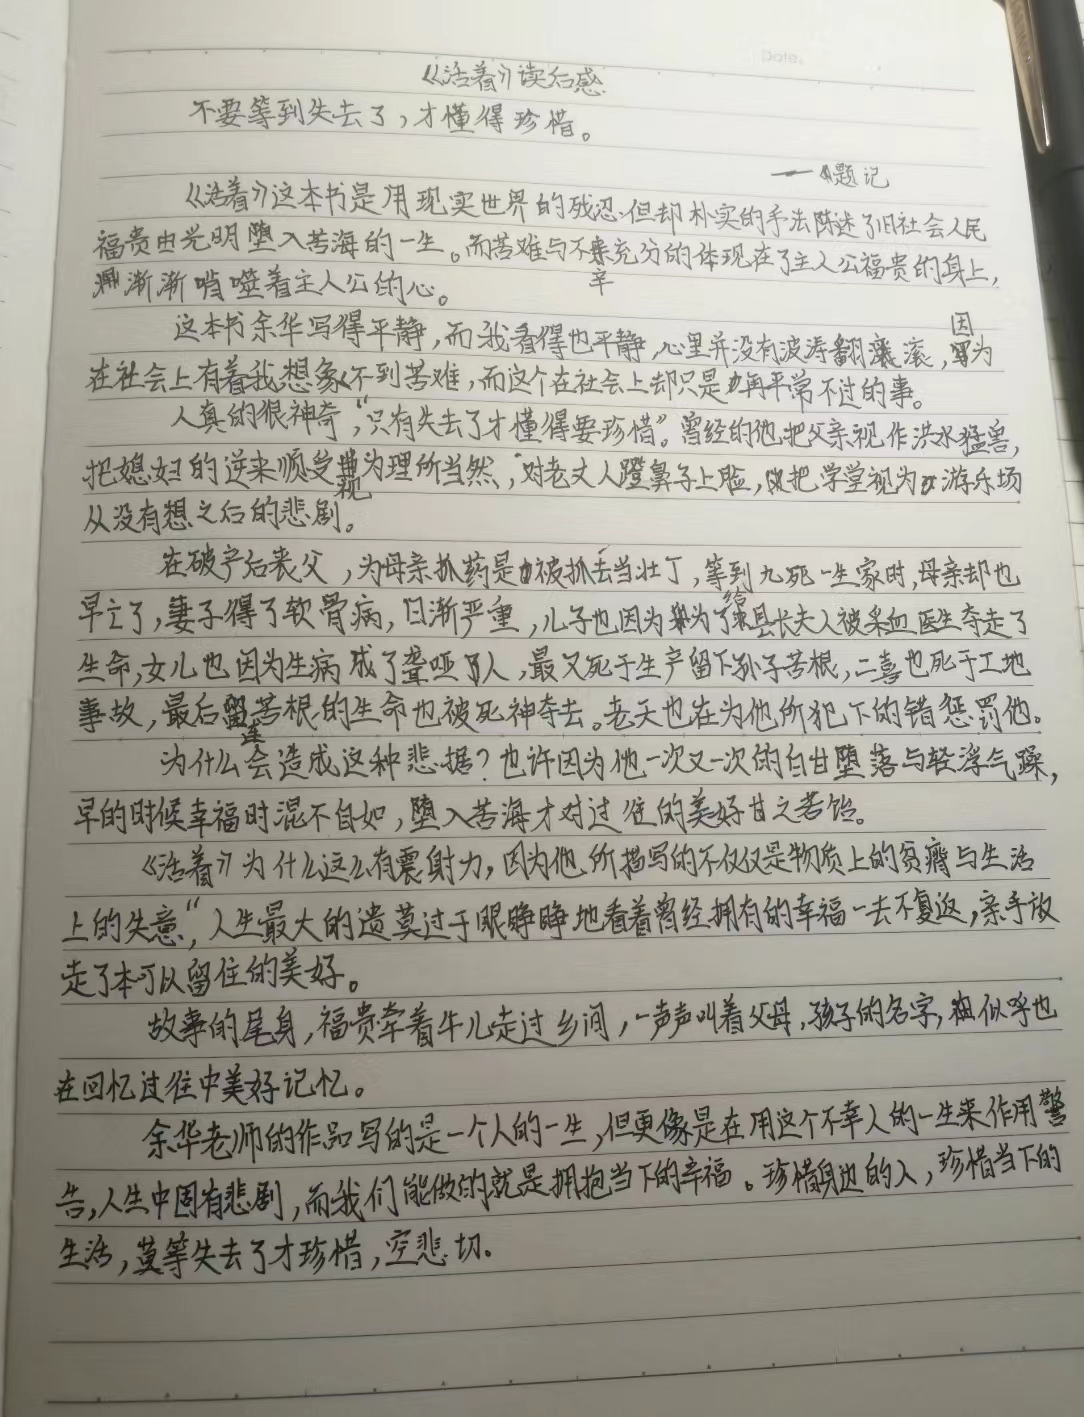 Date.
《活着》读后感
不要等到失去了，才懂得珍惜。
——题记
《活着》这本书是用现实世界的残忍但却朴实的手法陈述了旧社会人民
福贵由光明堕入苦海的一生。而苦难与不幸充分的体现在了主人公福贵的身上，
渐渐啃噬着主人公的心。
这本书余华写得平静，而我看得也平静，心里并没有波涛翻滚，因为
在社会上有着我想象不到苦难，而这个在社会上却只是再平常不过的事。
人真的很神奇，“只有失去了才懂得要珍惜”。曾经的他把父亲视作洪水猛兽，
把媳妇的逆来顺受视为理所当然，对老丈人蹬鼻子上脸，把学堂视为游乐场
从没有想之后的悲剧。
在破产后丧父，为母亲抓药是被抓去当壮丁，等到九死一生家时，母亲却也
早亡了，妻子得了软骨病，日渐严重，儿子也因为为了给县长夫人被采血医生夺走了
生命，女儿也因为生病成了聋哑人，最又死于生产留下孙子苦根，二喜也死于工地
事故，最后连苦根的生命也被死神夺去。老天也在为他所犯下的错惩罚他。
为什么会造成这种悲据？也许因为他一次又一次的自甘堕落与轻浮气躁，
早的时候幸福时混不自如，堕入苦海才对过往的美好甘之若饴。
《活着》为什么这么有震射力，因为他所描写的不仅仅是物质上的贫瘠与生活
上的失意“，人生最大的遗莫过于眼睁睁地看着曾经拥有的幸福一去不复返，亲手放
走了本可以留住的美好。
故事的尾身，福贵牵着牛儿走过乡间，一声声叫着父母，孩子的名字，似乎也
在回忆过往中美好记忆。
余华老师的作品写的是一个人的一生，但更像是在用这个不幸人的一生来作用警
告，人生中固有悲剧，而我们能做的就是拥抱当下的幸福。珍惜身边的人，珍惜当下的
生活，莫等失去了才珍惜，空悲切.